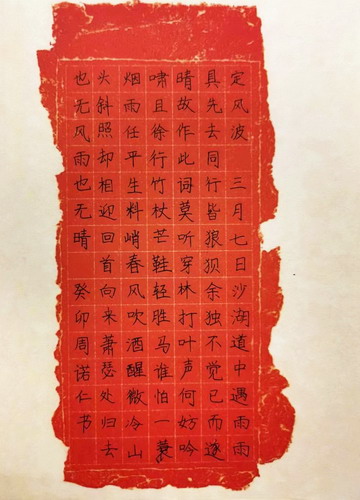 定风波 三月七日沙湖道中遇雨雨
具先去同行皆狼狈余独不觉已而遂
晴故作此词莫听穿林打叶声何妨吟
啸且徐行竹杖芒鞋轻胜马谁怕一蓑
烟雨任平生料峭春风吹酒醒微冷山
头斜照却相迎回首向来萧瑟处归去
也无风雨也无晴 癸卯周诺仁书